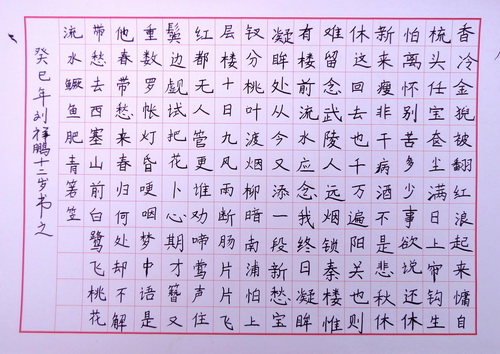 香冷金猊被翻红浪起来慵自
梳头任宝奁尘满日上帘钩生
怕离怀别苦多少事欲说还休
新来瘦非干病酒不是悲秋休
休这回去也千万遍阳关也则
难留念武陵人远烟锁秦楼惟
有楼前流水应念我终日凝眸
凝眸处从今又添一段新愁宝
钗分桃叶渡烟柳暗南浦怕上
层楼十日九风雨断肠片片飞
红都无人管更堆劝啼莺声住
鬓边觑试把花卜心期才簪又
重数罗帐灯昏哽咽梦中语是
他春带愁来春归何处却不解
带愁去西塞山前白鹭飞桃花
流水鳜鱼肥青箬笠
癸巳年刘祥鹏十二岁书之